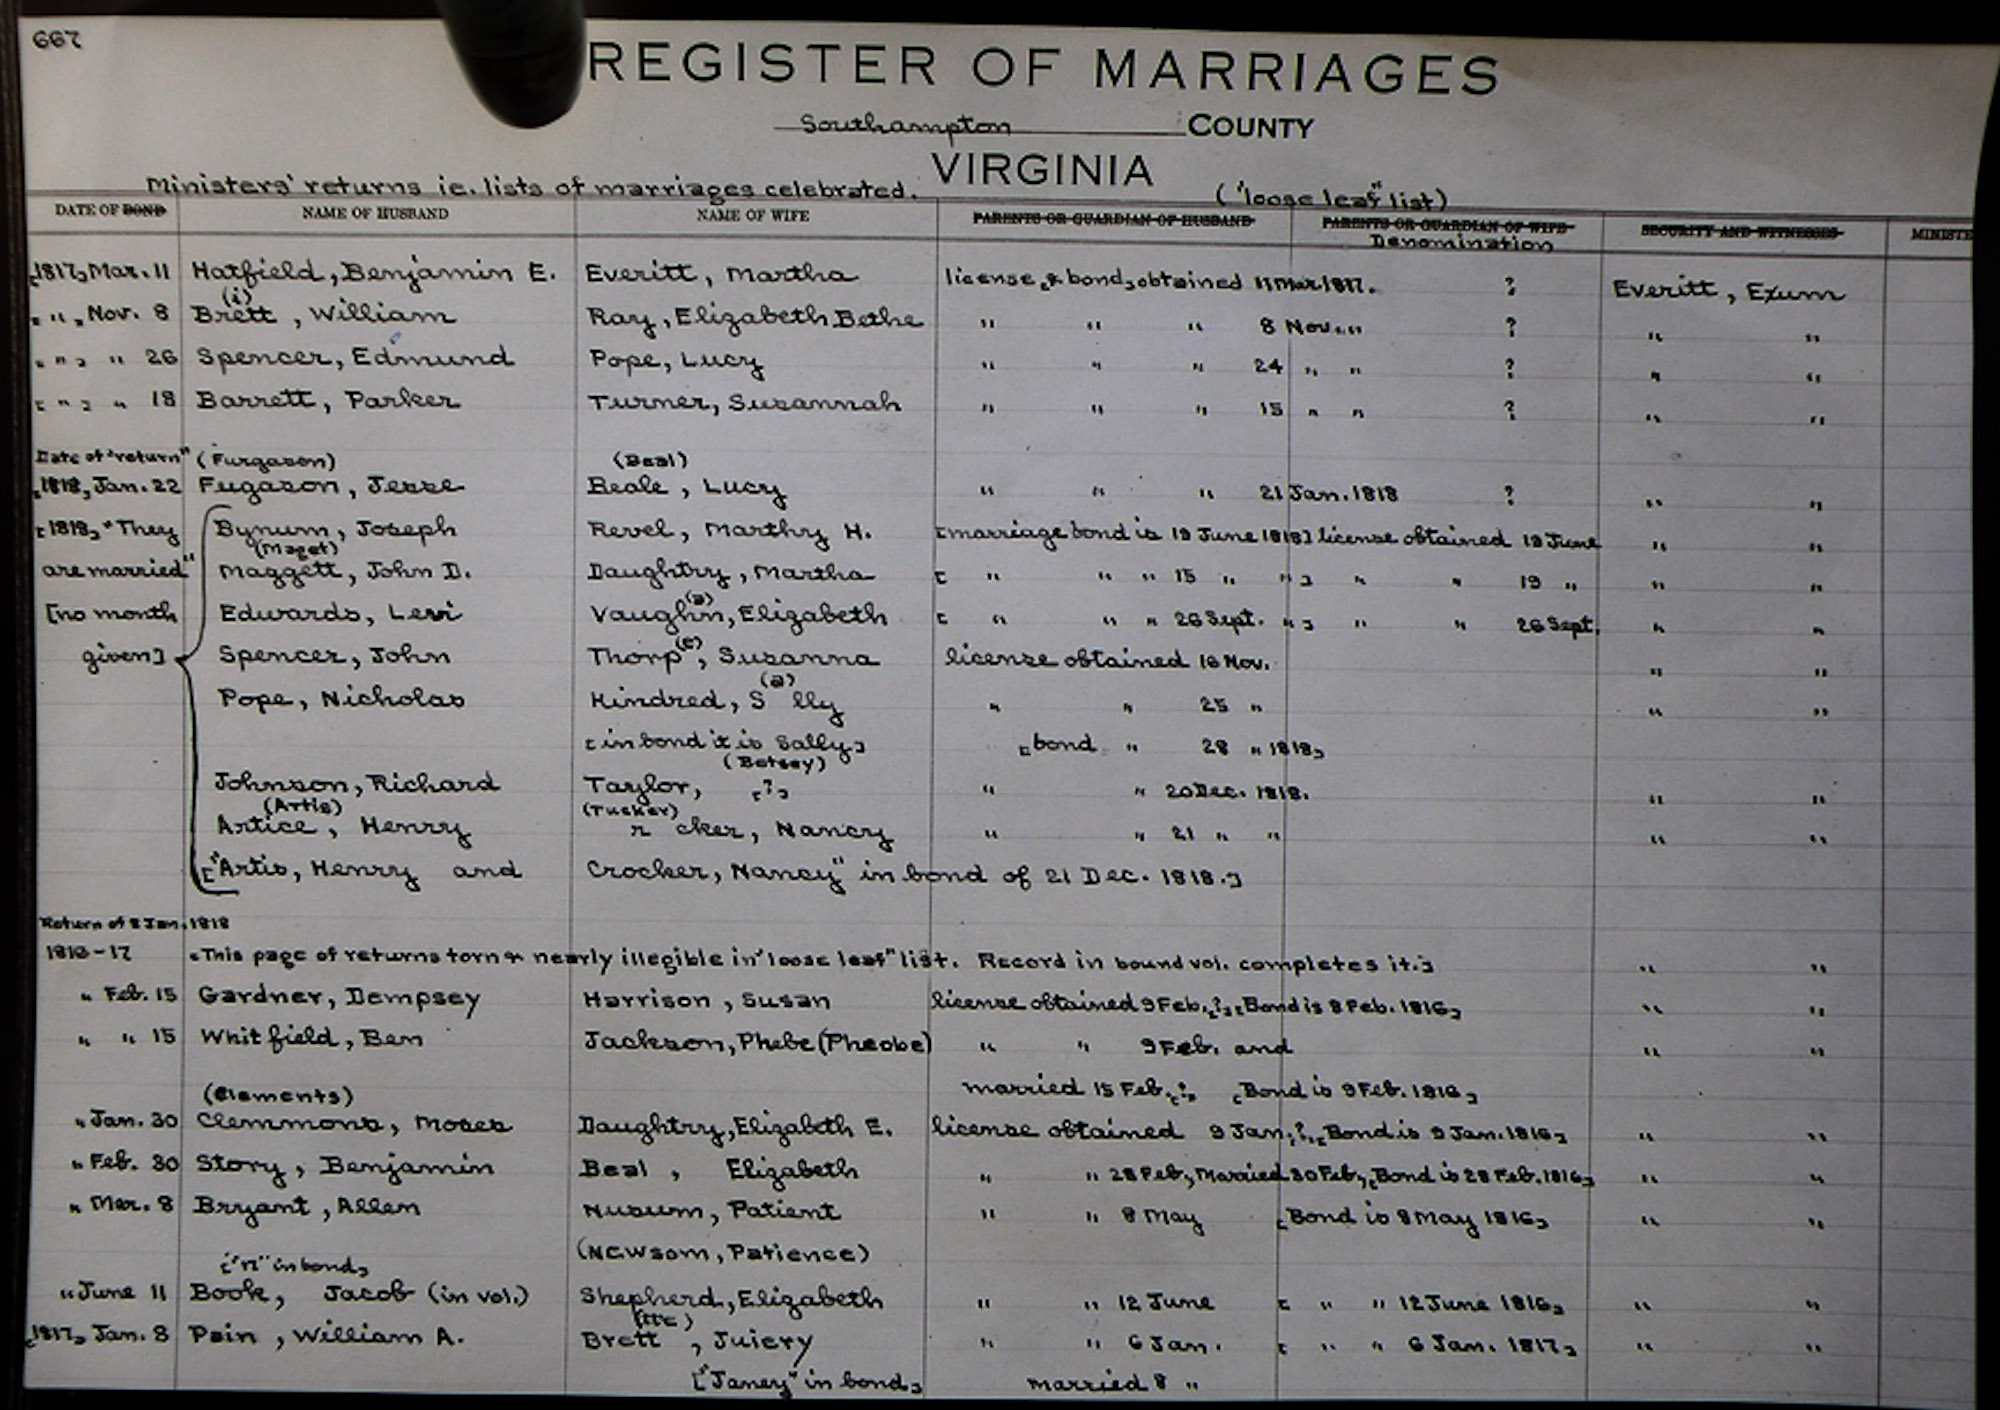 667
REGISTER OF MARRIAGES
Southampton COUNTY
VIRGINIA
Ministers' returns ie. lists of marriages celebrated. ("loose leaf" list)
DATE OF BOND NAME OF HUSBAND NAME OF WIFE PARENTS OR GUARDIAN OF HUSBAND PARENTS OR GUARDIAN OF WIFE SECURITY AND WITNESSES MINISTE
Denomination
[1817] Mar. 11 Hatfield, Benjamin E. Everitt, Martha license [& bond] obtained 11 Mar. 1817. ? Everitt, Exum
(i)
[ " ] Nov. 8 Brett, William Ray, Elizabeth Bethe " " " 8 Nov. " ? " "
[ " ] " 26 Spencer, Edmund Pope, Lucy " " " 24 " " ? " "
[ " ] " 18 Barrett, Parker Turner, Susannah " " " 15 " " ? " "
Date of "return" (Furgason) (Beal)
[1818] Jan. 22 Fugason, Jesse Beale, Lucy " " " 21 Jan. 1818 ? " "
[1818] "They Bynum, Joseph Revel, Marthry H. [marriage bond is 19 June 1818] license obtained 19 June " "
(Maget)
are married" Maggett, John D. Daughtry, Martha [ " " " 15 " " ] " " 19 " " "
(a)
[no month Edwards, Levi Vaughn, Elizabeth [ " " " 26 Sept. " ] " " 26 Sept. " "
given] Spencer, John Thorp(e), Susanna license obtained 16 Nov. " "
(a)
Pope, Nicholas Kindred, S lly " " 25 " " "
[in bond it is Sally] [bond " 28 " 1818]
(Betsey)
Johnson, Richard Taylor, [?] " " 20 Dec. 1818. " "
(Artis) (Tucker)
Artice, Henry r cker, Nancy " " 21 " " " "
["Artis, Henry and Crocker, Nancy" in bond of 21 Dec. 1818.]
Return of 8 Jan. 1818
1816-17 [This page of returns torn & nearly illegible in "loose leaf" list. Record in bound vol. completes it.] " "
" Feb. 15 Gardner, Dempsey Harrison, Susan license obtained 9 Feb. [?] [Bond is 8 Feb. 1816] " "
" " 15 Whitfield, Ben Jackson, Phebe (Pheobe) " " 9 Feb. and " "
married 15 Feb. [?] [Bond is 9 Feb. 1816]
(Clements)
" Jan. 30 Clemmons, Moses Daughtry, Elizabeth E. license obtained 9 Jan. [?] [Bond is 9 Jan. 1816] " "
" Feb. 30 Story, Benjamin Beal, Elizabeth " " 28 Feb., Married 30 Feb., [Bond is 28 Feb. 1816] " "
" Mar. 8 Bryant, Allen Nusum, Patient " " 8 May [Bond is 8 May 1816] " "
(Newsom, Patience)
["n" in bond]
" June 11 Book, Jacob (in vol.) Shepherd, Elizabeth " " 12 June [ " " 12 June 1816] " "
(tte)
[1817] Jan. 8 Pain, William A. Brett, Juiery " " 6 Jan. [ " " 6 Jan. 1817] " "
["Janey" in bond] married 8 "